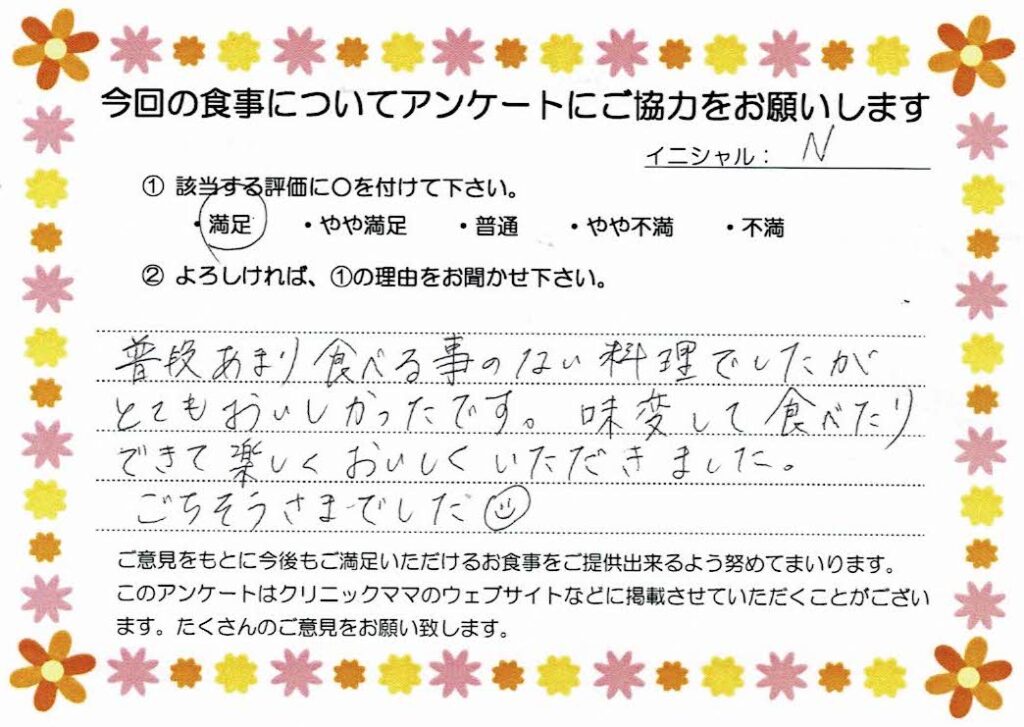 今回の食事についてアンケートにご協力をお願いします
イニシャル： N
① 該当する評価に〇を付けて下さい。
・満足 ・やや満足 ・普通 ・やや不満 ・不満
② よろしければ、①の理由をお聞かせ下さい。
普段あまり食べる事のない料理でしたが
とてもおいしかったです。味変して食べたり
できて楽しくおいしくいただきました。
ごちそうさまでした☺
ご意見をもとに今後もご満足いただけるお食事をご提供出来るよう努めてまいります。
このアンケートはクリニックママのウェブサイトなどに掲載させていただくことがござい
ます。たくさんのご意見をお願い致します。